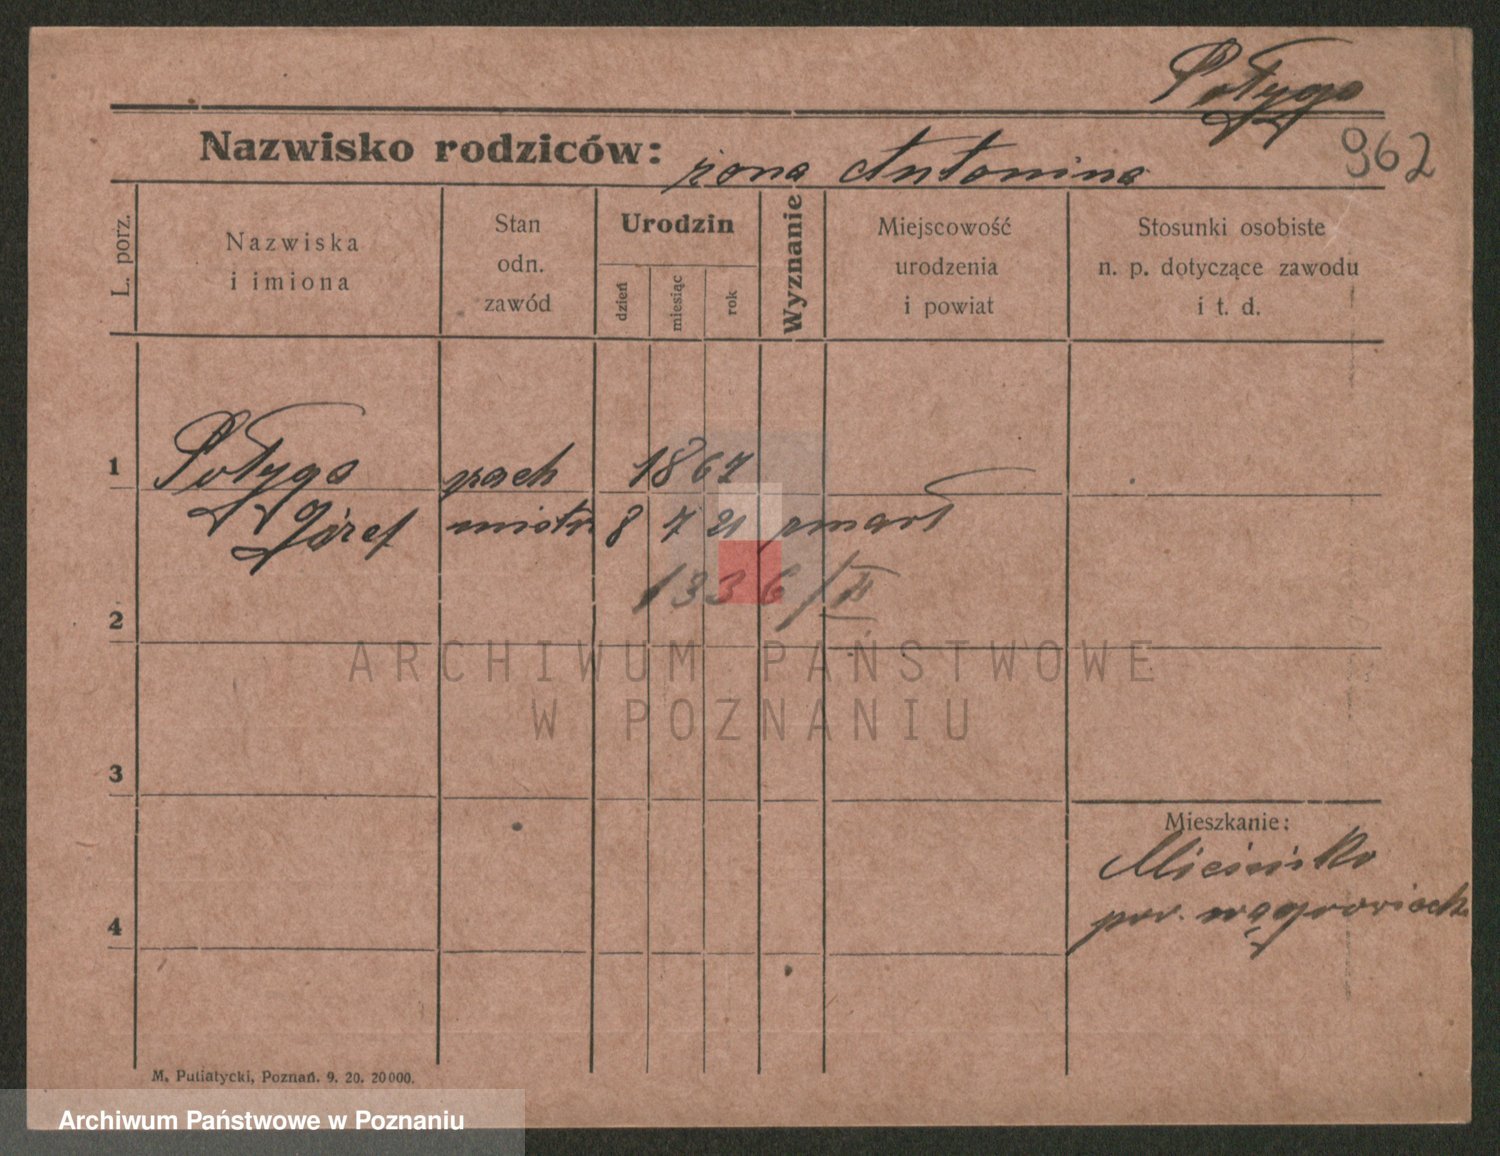 Połyga
962
Nazwisko rodziców: żona Antonina
L. porz.
Nazwiska
i imiona
Stan
odn.
zawód
Urodzin
dzień
miesiąc
rok
Wyznanie
Miejscowość
urodzenia
i powiat
Stosunki osobiste
n. p. dotyczące zawodu
i t. d.
1
Połyga 1867
Józef mistrz 8 7 21 zmarł
1336/II
2
ARCHIWUM PAŃSTWOWE
W POZNANIU
3
Mieszkanie:
Mieścisko
pow. wągrowieck.
4
M. Putiatycki, Poznań. 9. 20. 20000.
Archiwum Państwowe w Poznaniu